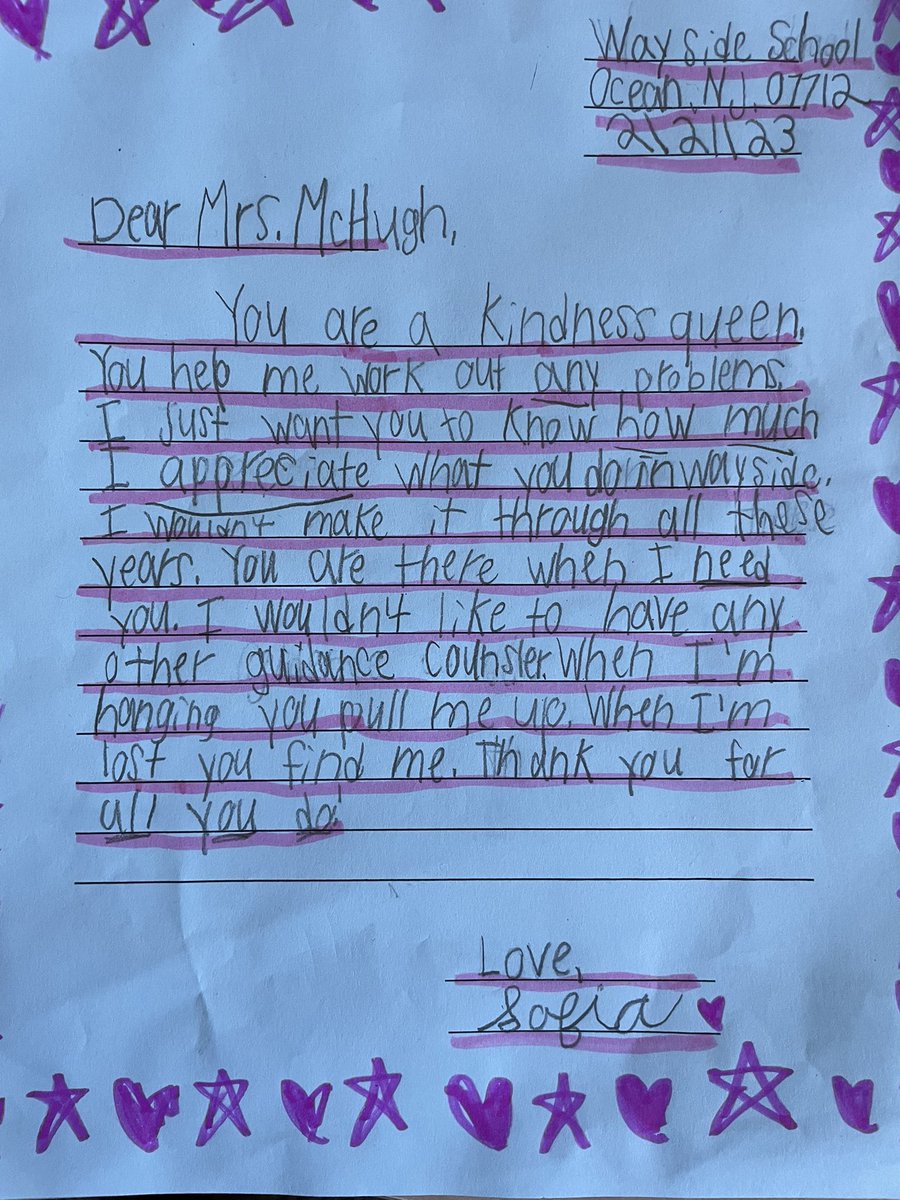 Wayside School
Ocean, NJ, 07712
2\21\23
Dear Mrs. McHugh,
You are a kindness queen.
You help me work out any problems.
I just want you to know how much
I appreciate what you do in wayside.
I wouldn't make it through all these
years. You are there when I need
you. I wouldn't like to have any
other guidance counsler. When I'm
hanging you pull me up. When I'm
lost you find me. Thank you for
all you do!
Love,
Sofia